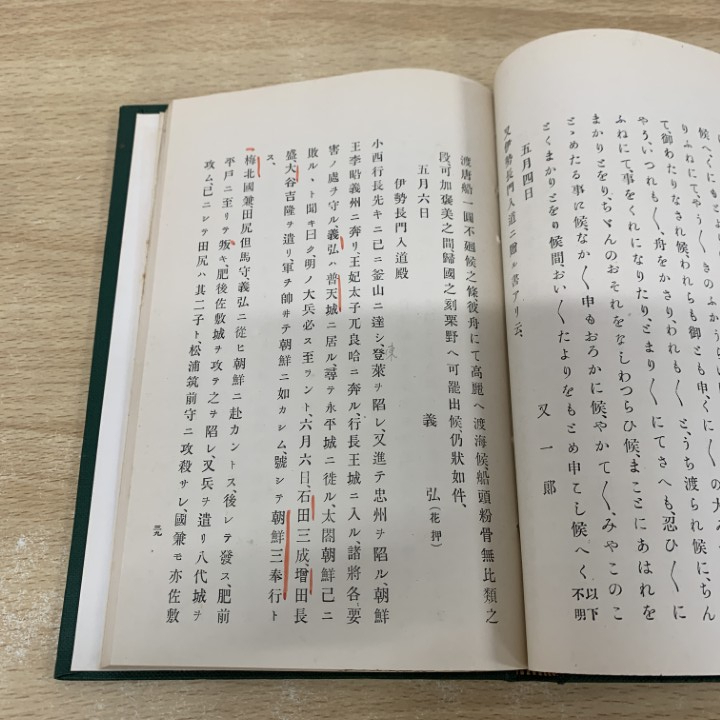 候へくにもき　のふかうらい　の大
りふねにてやう〳〵申、くにの御ために候に、ちん
て、御わたりなされ候、われらも御ともと、うち渡られ候に
やうい、つれも〳〵、舟をかさり、われも〳〵と、うち渡られ候て
ふねにて事をくれになりたり、とまり〳〵にてさへも、忍ひ〳〵に
まかりとをり、ちゞんのおそれをなしわつらひ候、まことにあはれを
とゝめたる事に候、なか〳〵申もおろかに候、やかて〳〵、みやこのこ
とくまかりとをり候間、おい〳〵たよりをもとめ申こし候へく以下不明
五月四日　又一郎
又伊勢長門入道ニ贈ル書アリ云、
渡唐船一圓不廻候之條、彼舟にて高麗へ渡海候、船頭粉骨無比類之
段、可加褒美之間、歸國之刻栗野へ可罷出候、仍狀如件、
五月六日　義弘（花押）
伊勢長門入道殿
小西行長先キニ已ニ釜山ニ達シ、登萊ヲ陷レ、又進テ忠州ヲ陷ル、朝鮮
東
王李昭義州ニ奔リ、王妃太子兀良哈ニ奔ル、行長王城ニ入ル、諸將各〻要
害ノ處ヲ守ル、義弘ハ普天城ニ居ル、尋テ永平城ニ徙ル、太閤朝鮮已ニ
敗ルヽト聞キ曰ク、明ノ大兵必ス至ラント、六月六日、石田三成、增田長
盛、大谷吉隆ヲ遣リ、軍ヲ帥ヰテ朝鮮ニ如カレム、號シテ朝鮮三奉行ト
ス、
梅北國兼田尻但馬守、義弘ニ從ヒ朝鮮ニ赴カントス後レテ發ス、肥前
平戸ニ至リテ叛キ、肥後佐敷城ヲ攻テ之ヲ陷レ、又兵ヲ遣リ八代城ヲ
攻ム、已ニシテ田尻ハ其二子ト、松浦筑前守ニ攻殺サレ、國兼モ亦佐敷
三九